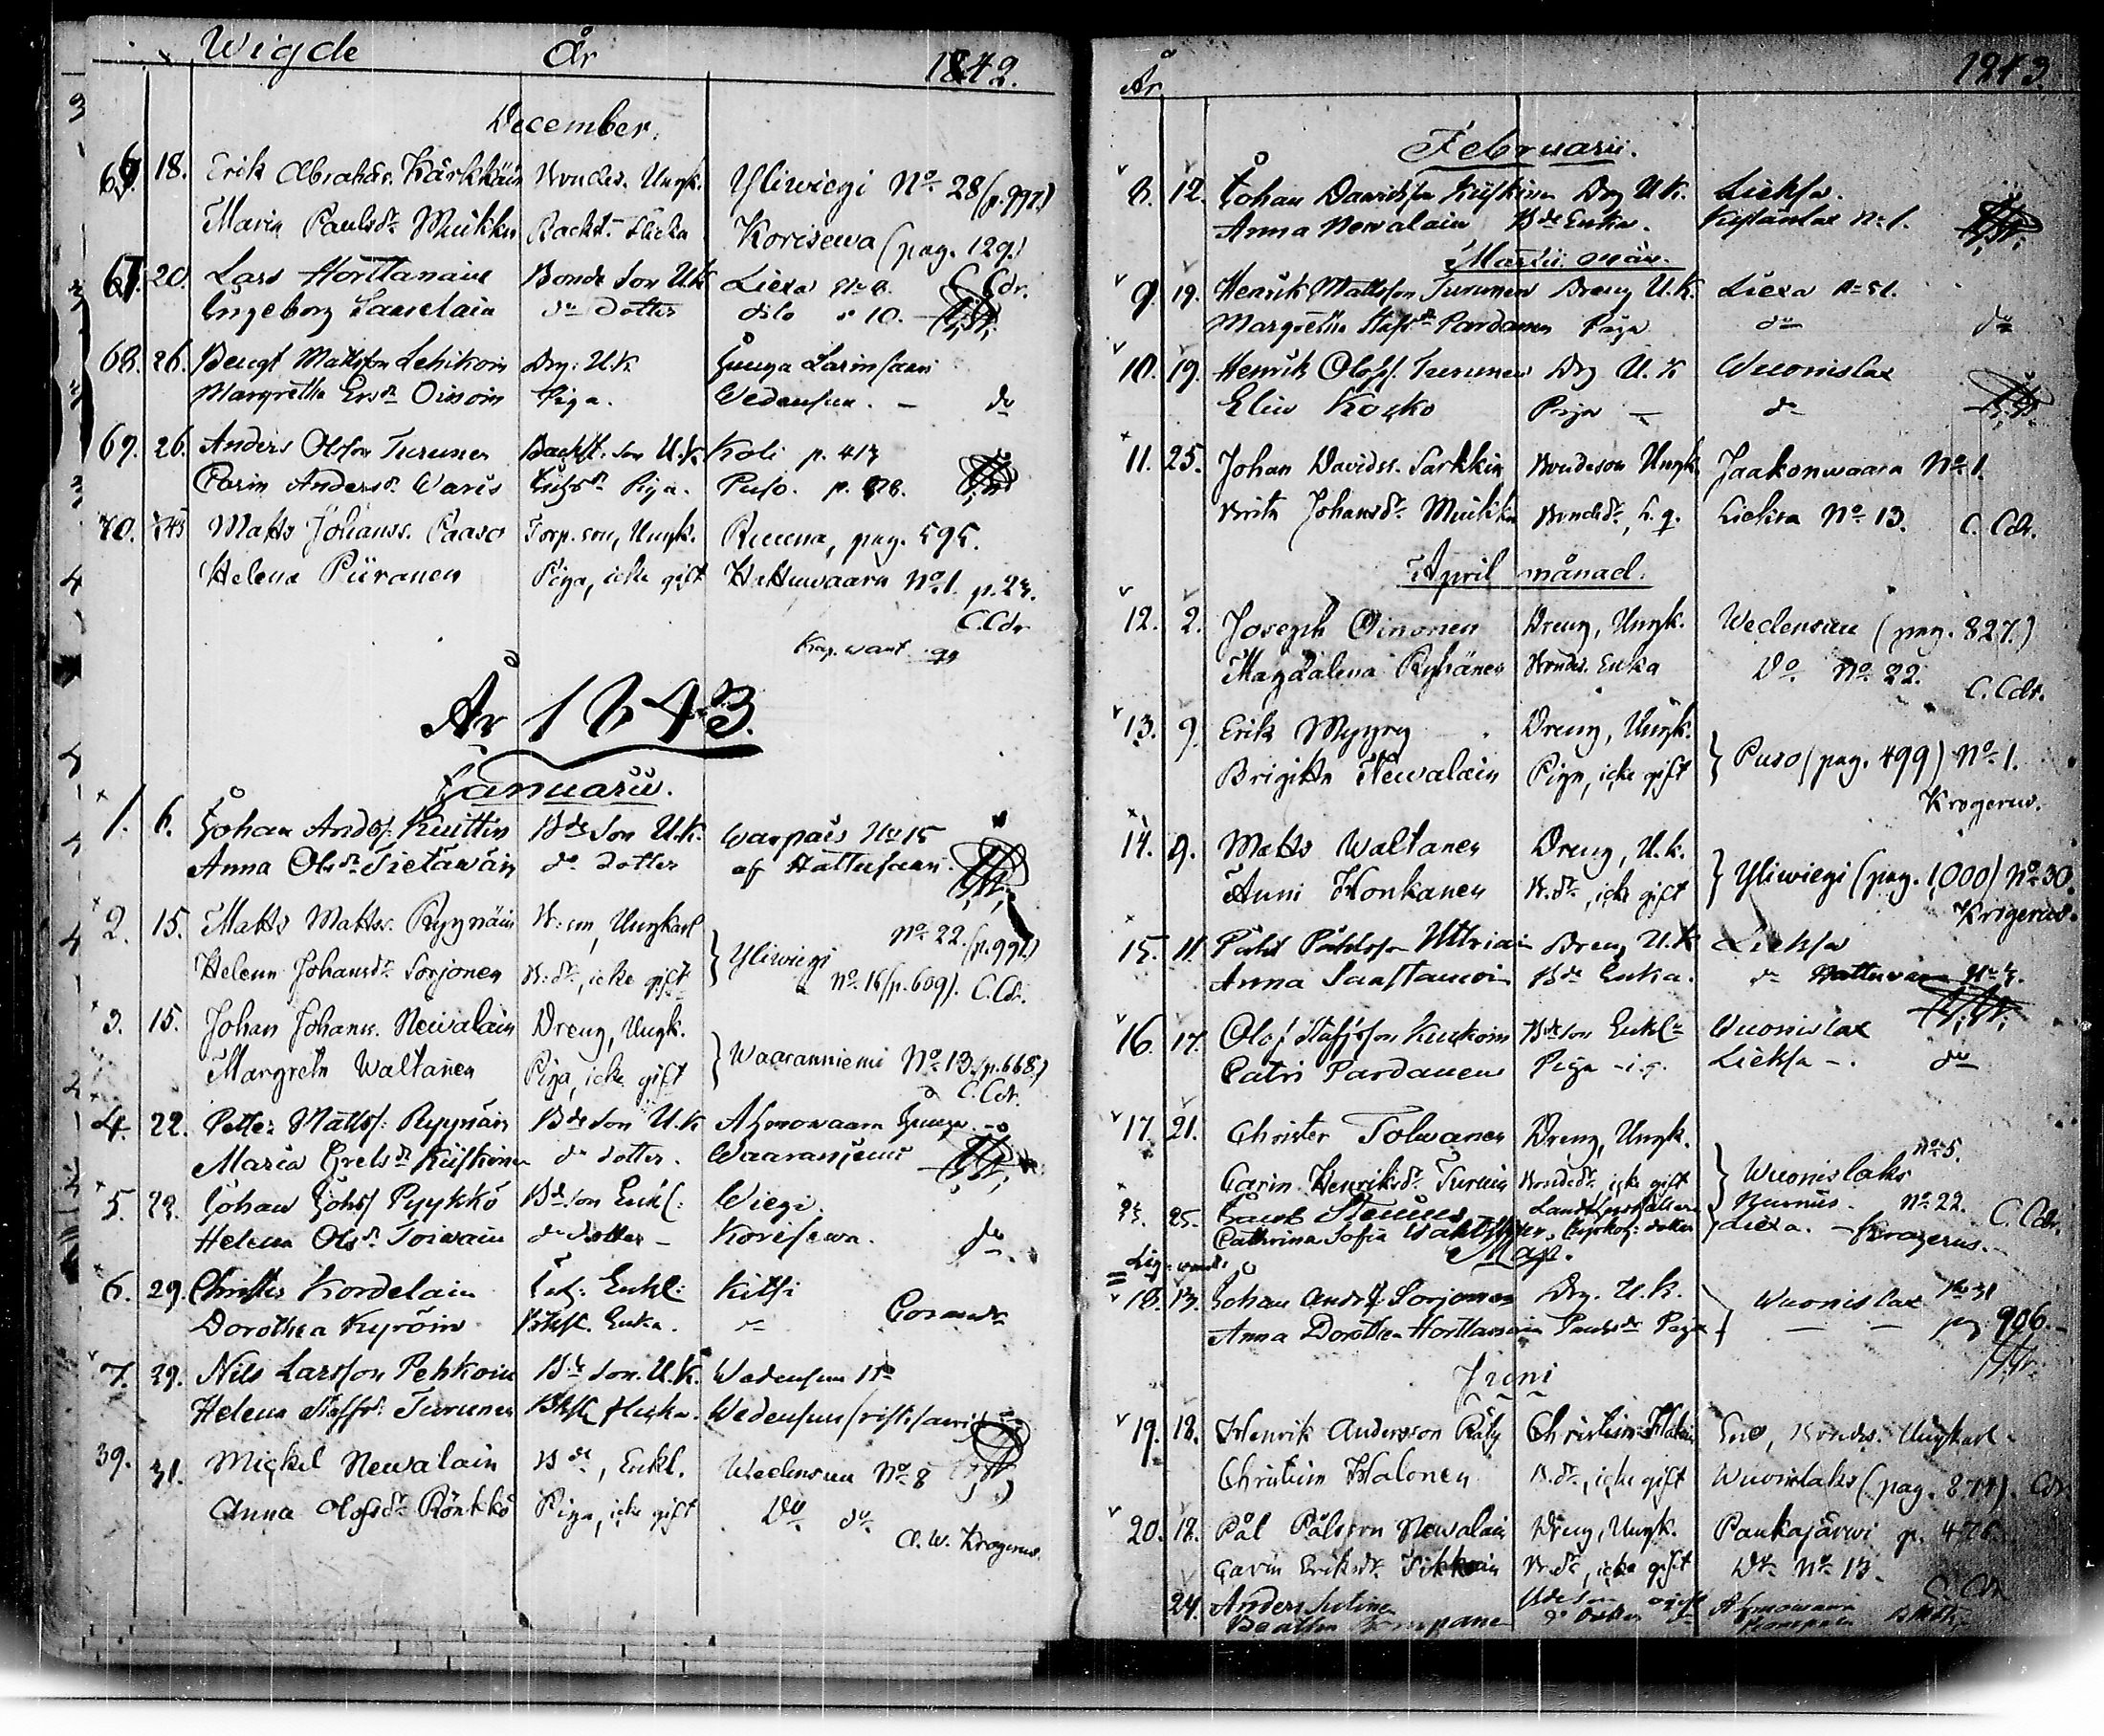 Wigde År 1842.
December.
66. 18. Erik Abrahās. Kärkkäin Bondes. Ungk. Yliwiegi No. 28 (p. 997.)
Maria Paulsdr. Muikku Backst. flicka Korisewa (pag. 129.)
67. 20. Lars Horttanain Bonde Son U.K. Liexa No 8. C. Cdr.
Ingeborg Saarelain do Dotter dito " 10.
68. 26. Bengt Mattsson Lehikoin Drg: U.K. Juuga Larinsaari
Margretha Ersdr Oinoin Piga. Wedensuu. – do
69. 26. Anders Olsson Turunen Backst. son U.K. Koli p. 413
Carin Andersdr. Waris Piga. Puso. p.
70. Matts Johanss. Paaso Torp. son, Ungk. Ruuna, pag. 595.
Helena Piiranen Piga, icke gift Hattuwaara No. 1. p. 23.
C. Cdr
År 1843.
Januarii.
1. 6. Johan Andss. Kuittin Bde Son U.K. Warpais No 15
Anna Olsdr. Tietäwäin do dotter af Hattusaari.
2. 15. Matts Matss. Ryynäin B: son, Ungkarl No. 22. (p. 991.)
Helena Johansdr. Sorjonen B: dr., icke gift } Yliwiegi No. 16 (p. 609). C. Cdr.
3. 15. Johan Johanss. Newalain Dreng, Ungk.
Margreta Waltanen Piga, icke gift } Waaraniemi No. 13. (p. 668.)
C. Cdr.
4. 22. Petter Matts: Ryynäin Bde Son U.K. Ahmowaara Juuga
Maria Grelsdr Kiiskinen do dotter. Waaraniemi
5. 22. Johan Johs: Pyykkö Bde son Enkl: Wiegi.
Helena Olsdr. Toiwain do dotter – Korisewa. do
6. 29. Christer Kordelain Enkl: Kitsi
Dorothea Kyröin Enka. do
7. 29. Nils Larsson Pehkoin Bde Son. U.K. Wedensuu
Helena Staffsdr: Turunen flicka. Wedensuu
39. 31. Mickel Newalain Bde, Enkl. Wedensuu No. 8
Anna Olofsdr. Rönkkö Piga, icke gift Do. do.
A. W. Krogerus.
År 1843.
Februarii.
8. 12. Johan Dawidsson Kiiskinen Drg U.K. Lieksa.
Anna Newalain Bde Enka. No 1.
Martii mån.
9. 19. Henrik Mattsson Turunen Dreng U.K. Liexa No 51.
Margretha Stafsdr Pardanen Piga do do
10. 19. Henrik Olofs. Turunen Drg U.K Wuonislax
Elin Kocko Piga – do
11. 25. Johan Davidss. Sarkkin Bondeson Ungk. Jaakonwaara No. 1.
Brita Johansdr. Muikku Bondedr., i. g. Lieksa No. 13. C. Cdr.
April månad.
12. 2. Joseph Oinonen Dreng, Ungk. Wedensuu (pag. 827.)
Magdalena Ryhänen Bondes. Enka Do. No. 22. C. Cdr.
13. 9. Erik Myyry Dreng, Ungk.
Brigitta Newalain Piga, icke gift } Puso (pag. 499) No. 1.
Krogerus.
14. 9. Matts Waltanen Dreng, U.k.
Anni Honkanen B. dr., icke gift } Yliwiegi (pag. 1,000) No. 30.
Krogerus.
15. 11. Påhl Påhlsson Uttriain Dreng U.K Lieksa
Anna Saastamoin Bde Enka. do Hattuwaara No 3.
16. 17. Olof Stafsson Kuckoin Bde son Enkl. Wuonislax
Catri Pardanen Piga – i.g. Lieksa –. do
17. 21. Christer Tolwanen Dreng, Ungk. No. 5.
Carin Henriksdr. Turuin Bondedr. icke gift } Wuonislaks
23. 25. Jacob Stenius Nurmis. No. 22. C. Cdr.
Cathrina Sofia dotter Liexa. – Krogerus.
Maji.
18. 13. Johan Andss Sorjonen Drg. U.K. } Wuonislax No 31
Anna Dorothea Horttanain Piga – – pag 906. –
Juni
19. 18. Henrik Andersson Räty Eno, Bondes. Ungkarl
Christin Halonen B. dr., icke gift Wuonislaks (pag. 874). Cdr
20. 18. Pål Pålsson Newalain Dreng, Ungk. Pankajärwi p. 476.
Carin Eriksdr. B. dr., icke gift Do. No. 13.
C. Cdr
24. Anders
Beatha